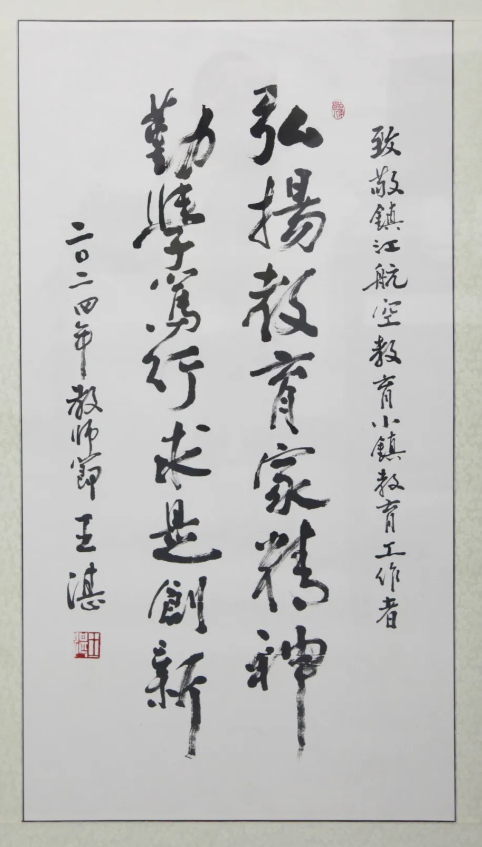 致敬鎮江航空教育小鎮教育工作者
弘揚教育家精神
勤學篤行求是創新
二〇二四年教師節 王湛